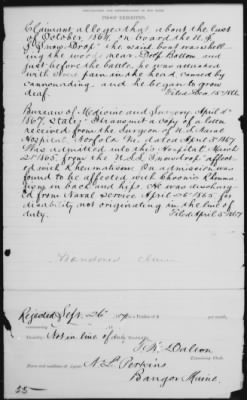 Claimant alleges that about the last
of October 1864, on board the U.S.
S. "Snow Drop" the said boat was shell-
ing the woods near Deep Bottom and
just before the battle, he was attacked
with some pain in the head caused by
cannonading and he began to grow
deaf.
Bureau of Medicine and Surgery April 5th
1867, States: Transmit a copy of a letter
received from the Surgeon of U.S. Naval
Hospital Norfolk Va. dated April 3d 1867
Was admitted into this Hospital March
21st 1865, from the U.S.S. Snowdrop affect-
ed with Rheumatism. On admission was
found to be affected with Chronic Rheuma-
tism in back and hips. He was dischar-
ged from Naval Service April 26th 1865 for
disability not originating in the line of
duty. Filed April 5, 1867
Abandoned claim
Rejected Sept. 26
Not in line of duty
Dalton
N. L. Perkins
Bangor Maine.
25